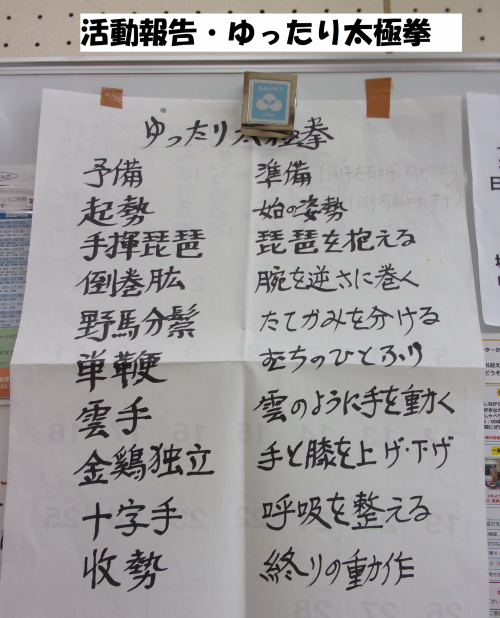 活動報告・ゆったり太極拳
ゆったり太極拳
予備 準備
起勢 始の姿勢
手揮琵琶 琵琶を抱える
倒巻肱 腕を逆さに巻く
野馬分鬃 たてがみを分ける
単鞭 むちのひとふり
雲手 雲のように手を動く
金鶏独立 手と膝を上げ・下げ
十字手 呼吸を整える
收勢 終りの動作